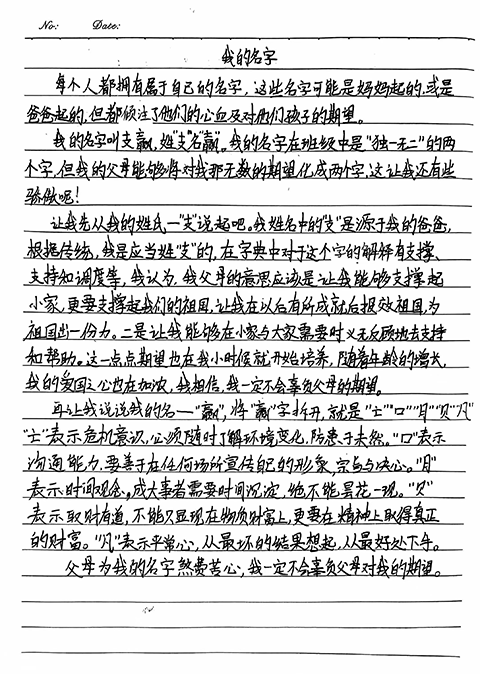 No: Date:
我的名字
每个人都拥有属于自己的名字，这些名字可能是妈妈起的，或是
爸爸起的，但都倾注了他们的心血及对他们孩子的期望。
我的名字叫支赢，姓"支"名"赢"。我的名字在班级中是"独一无二"的两
个字，但我的父母能够将对我那无数的期望化成两个字，这让我还有些
骄傲呢！
让我先从我的姓氏一"支"说起吧。我姓名中的"支"是源于我的爸爸，
根据传统，我是应当姓"支"的，在字典中对于这个字的解释有支撑、
支持和调度等，我认为，我父母的意思应该是让我能够支撑起
小家，更要支撑起我们的祖国，让我在以后有所成就后报效祖国，为
祖国出一份力。二是让我能够在小家与大家需要时义无反顾地去支持
和帮助。这一点点期望也在我小时候就开始培养，随着年龄的增长，
我的爱国之心也在加浓，我相信，我一定不会辜负父母的期望。
再让我说说我的名一"赢"，将"赢"字拆开，就是"亡""口""月""贝""凡"
"亡"表示危机意识，必须随时了解环境变化，防患于未然。"口"表示
沟通能力，要善于在任何场所宣传自己的形象，宗旨与决心。"月"
表示时间观念，成大事者需要时间沉淀，绝不能昙花一现。"贝"
表示取财有道，不能只显现在物质财富上，更要在精神上取得真正
的财富。"凡"表示平常心，从最坏的结果想起，从最好处下手。
父母为我的名字煞费苦心，我一定不会辜负父母对我的期望。